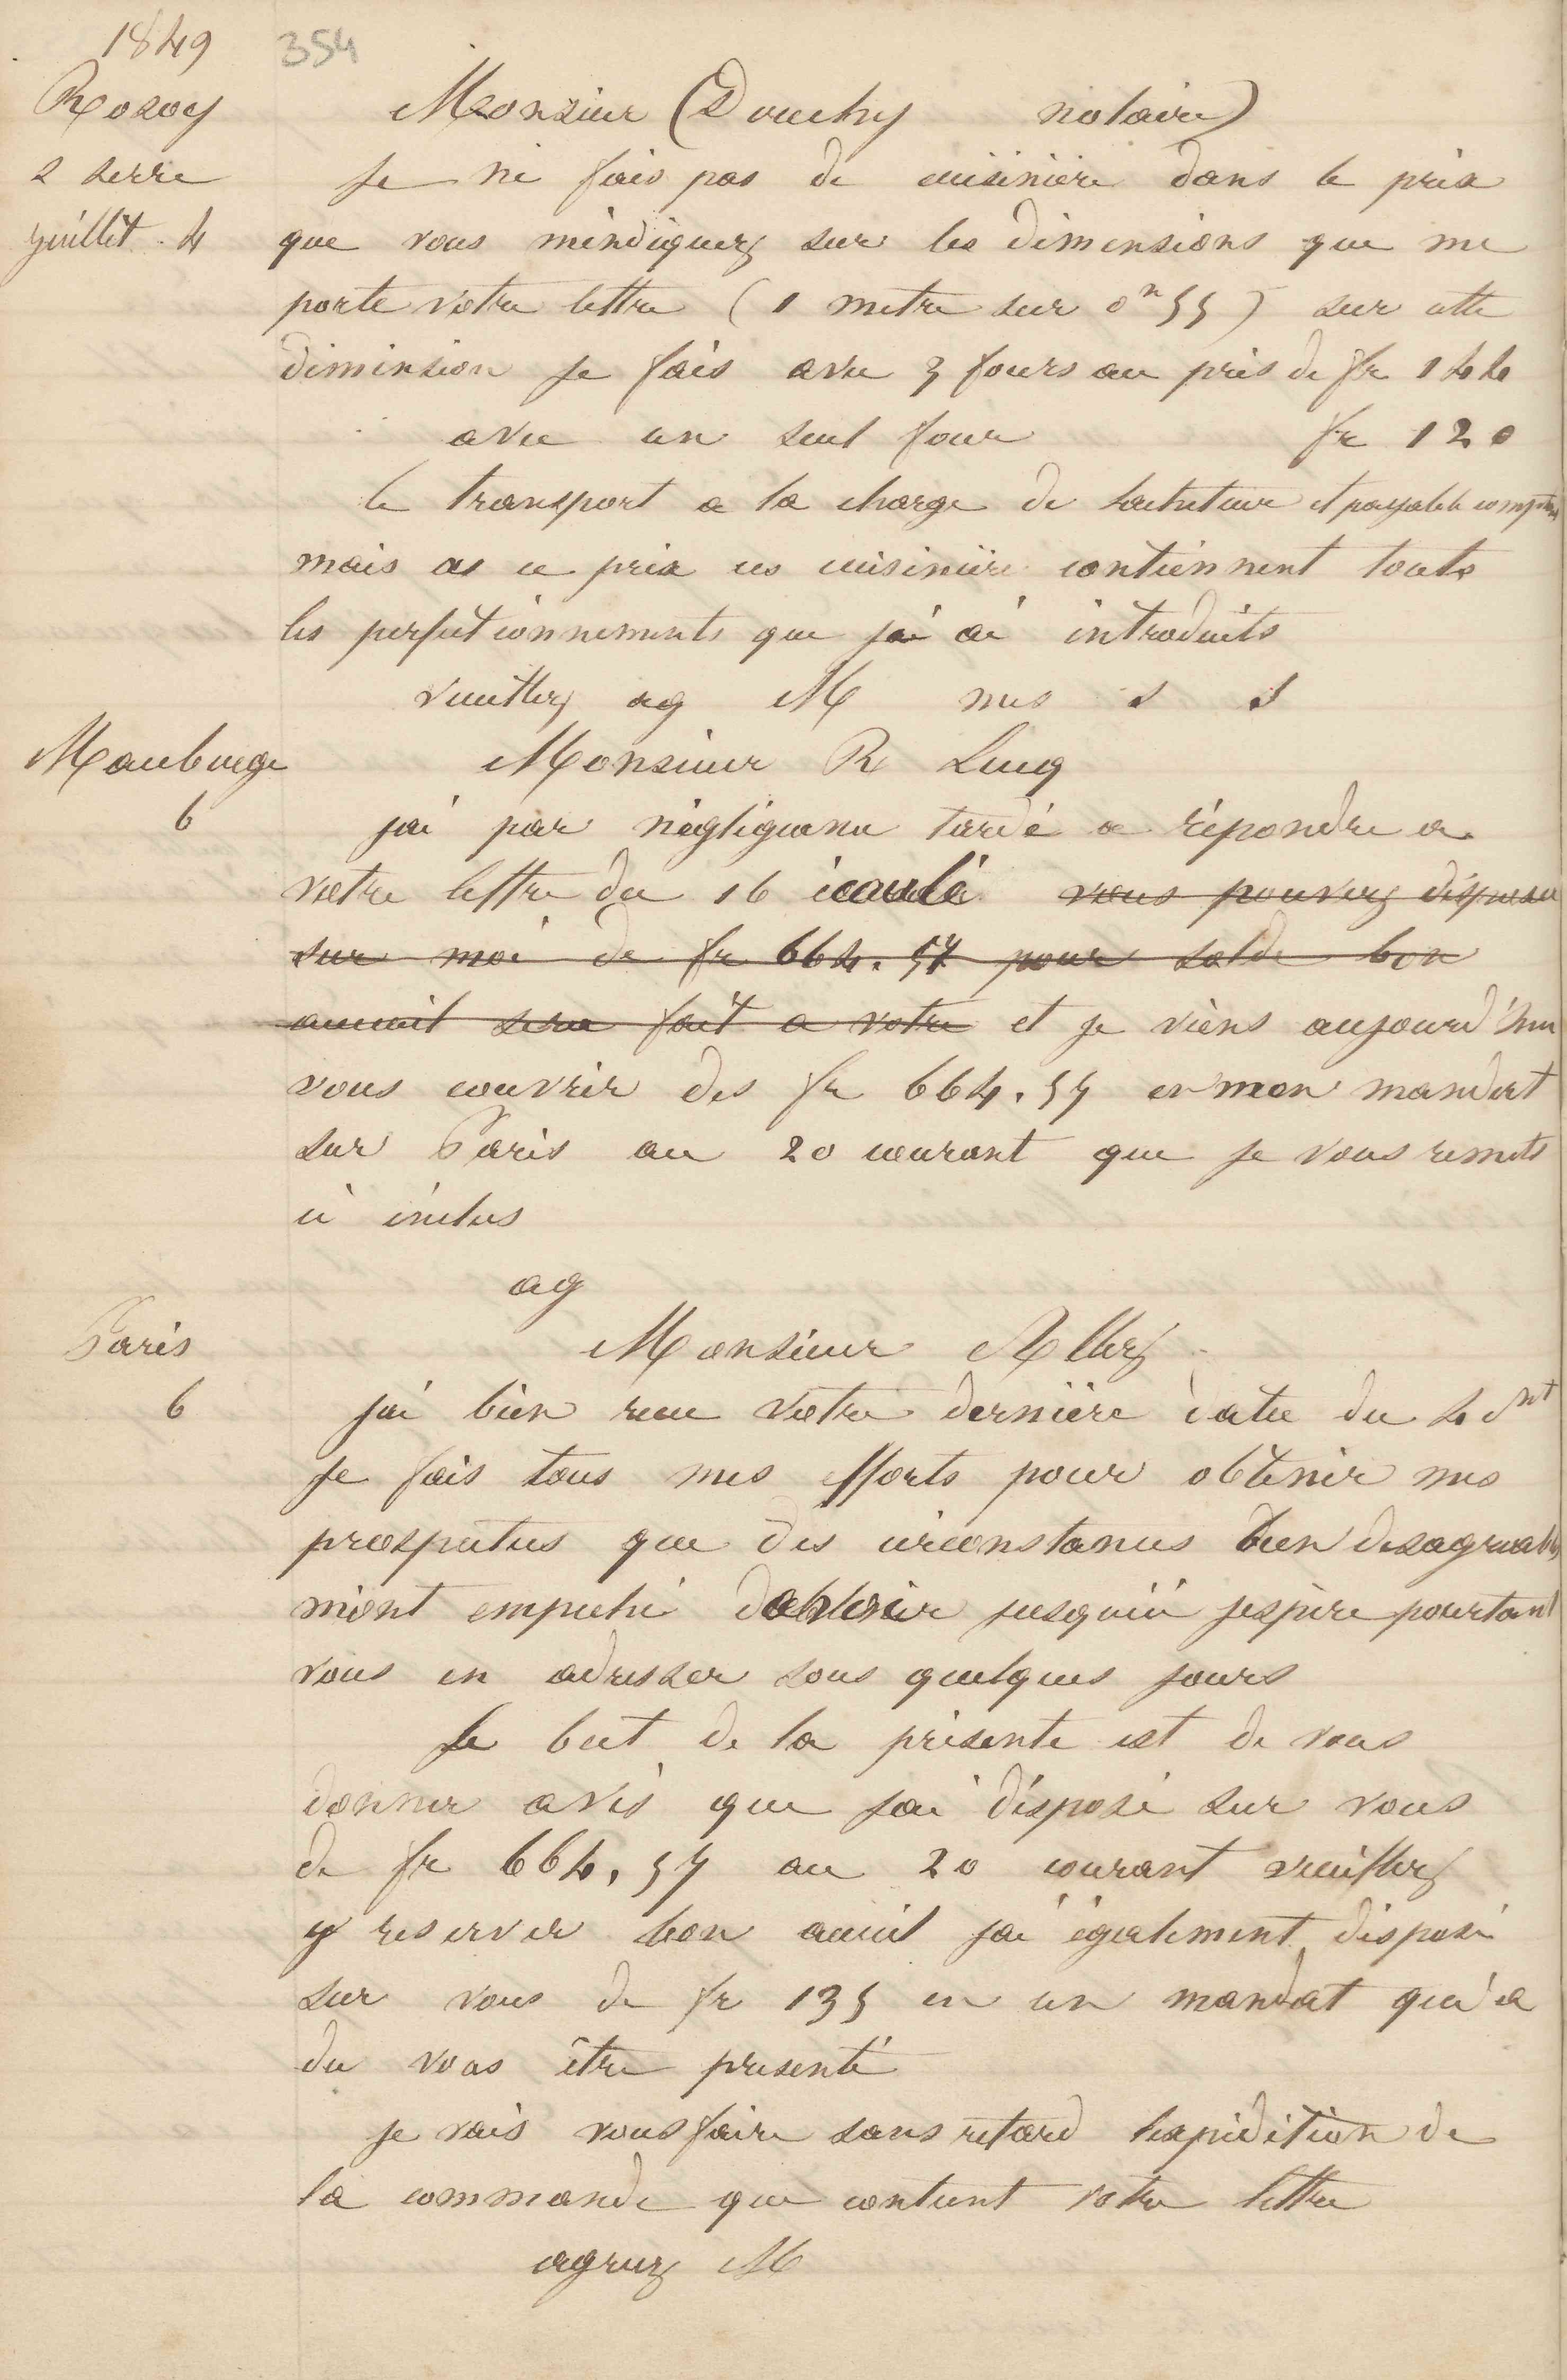 1849
354
Rozoy
s serre
juillet . 4
Monsieur (Douchy notaire)
Je ne fais pas de cuisinière dans le prix
que vous m'indiquez sur les dimensions que me
porte votre lettre (1 metre sur 0m 55) sur cette
dimension je fais avec 3 fours au pris de fr 144
avec un seul four fr 120
le transport a la charge de lacheteur et payable comptant
mais as ce prix ces cuisinière contiennent touts
les perfectionnements que jai ai introduits
veuillez ag M mes s s
Maubeuge
6
Monsieur R Lucq
jai par négligeance tardé a répondre a
votre lettre du 16 écoulé vous pouvez disposer
sur moi de fr 664.57 pour solde bon
accueil sera fait a votre et je viens aujourd'hui
vous couvrir des fr 664.57 en mon mandat
sur Paris au 20 courant que je vous remets
ci inclus
ag
Paris
6
Monsieur Allez
jai bien recu votre dernière datée du 4 ct
je fais tous mes efforts pour obtenir mes
prospectus que des circonstances bien desagreables
m'ont empeché dobtenir jusqu'ici jespère pourtant
vous en adresser sous quelques jours
Le but de la présente est de vous
donner avis que jai disposé sur vous
de fr 664,57 au 20 courant veuillez
y reserver bon acceuil jai également disposé
sur vous de fr 135 en un mandat qui a
du vous être presenté
je vais vous faire sans retard lexpédition de
la commande que contient votre lettre
agreez M